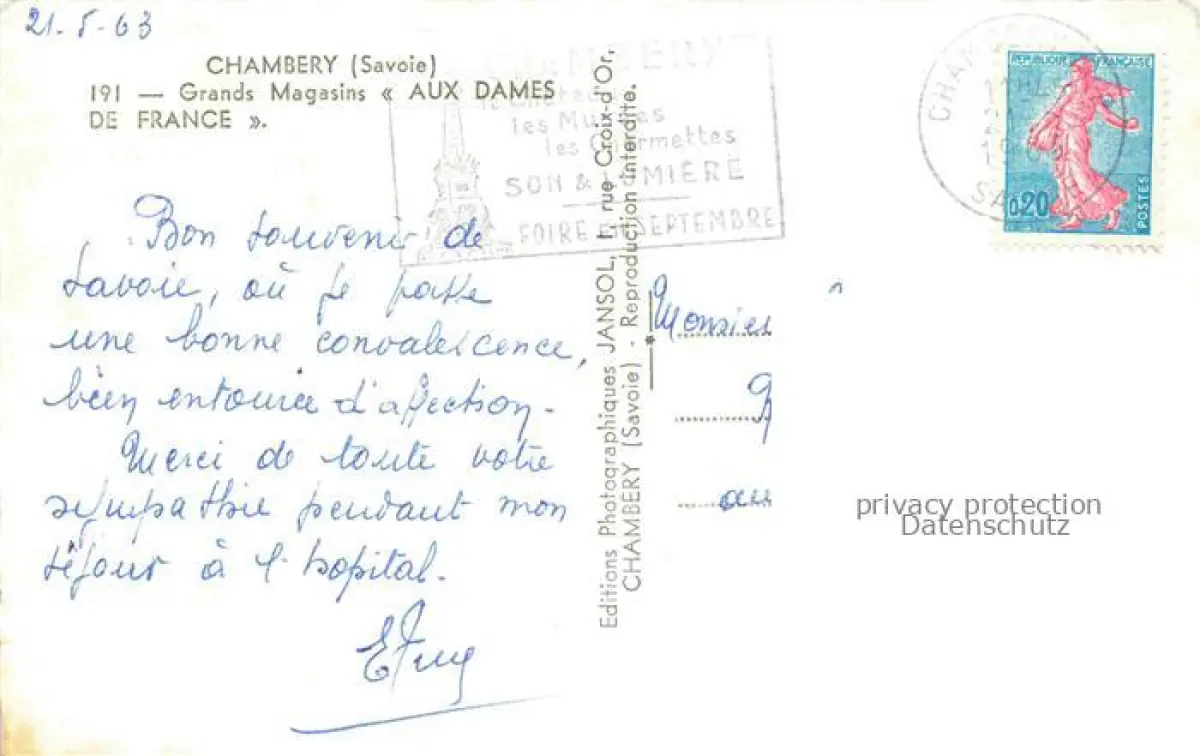 21.5.63
CHAMBERY (Savoie)
191 — Grands Magasins « AUX DAMES
DE FRANCE ».
CHAMBERY
le Château
les Musées
les Charmettes
SON & LUMIÈRE
FOIRE EN SEPTEMBRE
Bon souvenir de
Savoie, où je passe
une bonne convalescence,
bien entourée d'affection.
Merci de toute votre
sympathie pendant mon
séjour à l'hopital.
Editions Photographiques JANSOL, 1 rue Croix-d'Or,
CHAMBERY (Savoie) - Reproduction interdite.
CHAMBERY
SAVOIE
REPUBLIQUE FRANÇAISE
0,20
POSTES
Monsieu
au
privacy protection
Datenschutz